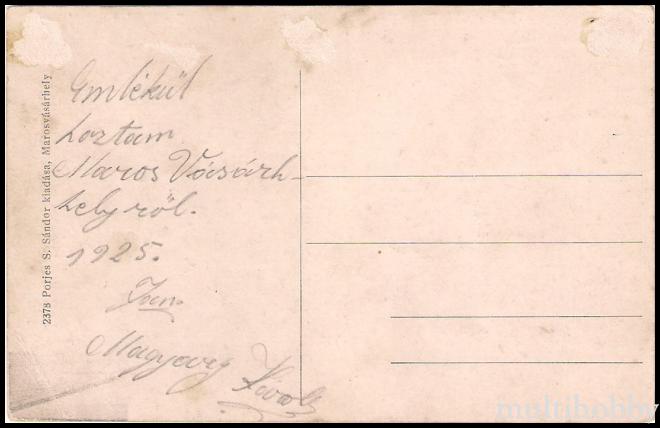 2378 Porjes S. Sándor kiadása, Marosvásárhely
Emlékül
hoztam
Maros Vásárh-
helyről.
1925.
Magyary
multihobby